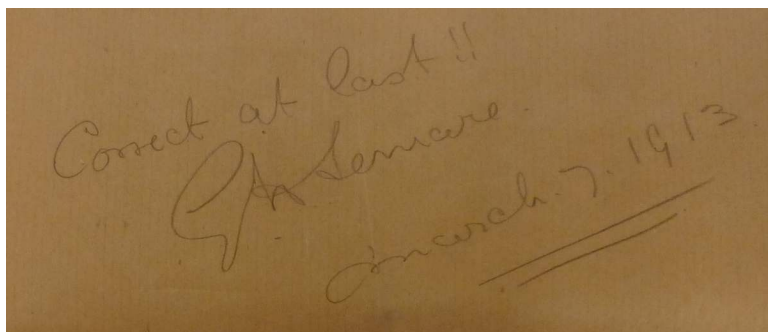 Correct at last!!
G A Lemare.
march. 7. 1913